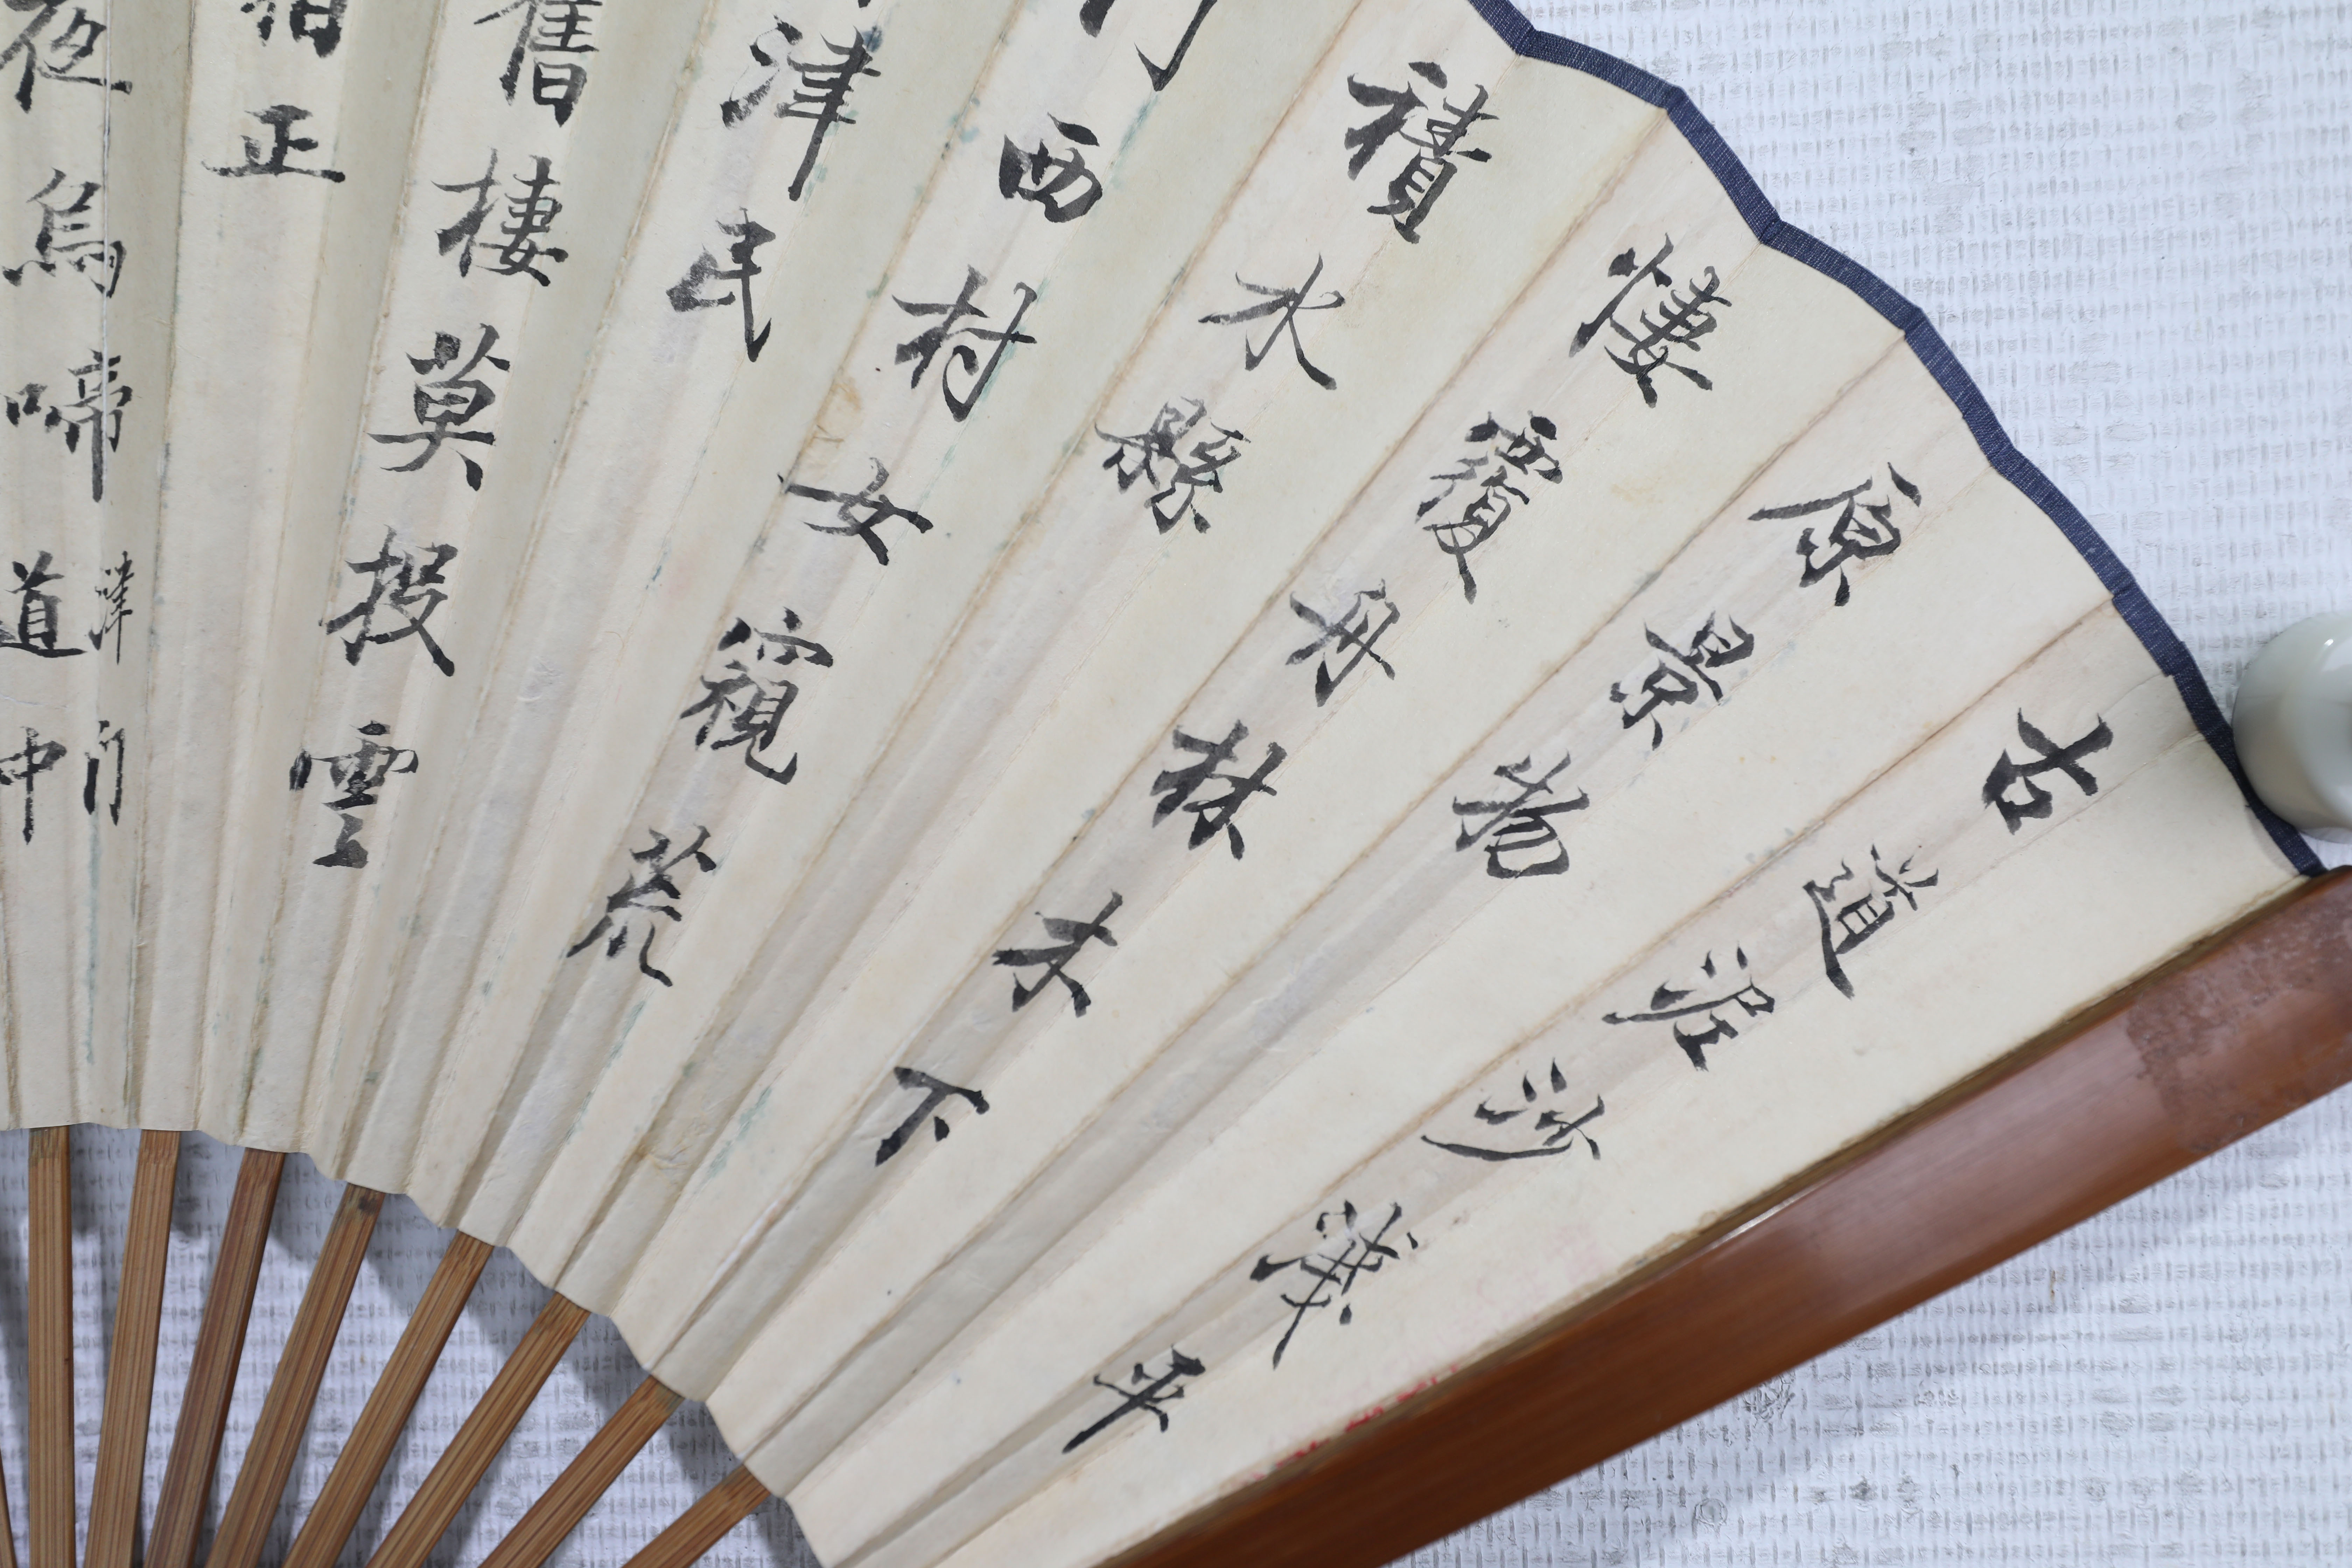 古道泥沙濺平
原景物
悽覆舟林未下
積水縣
西村女窺荒
津民
舊棲莫投雲
正
夜烏啼
津門
道中